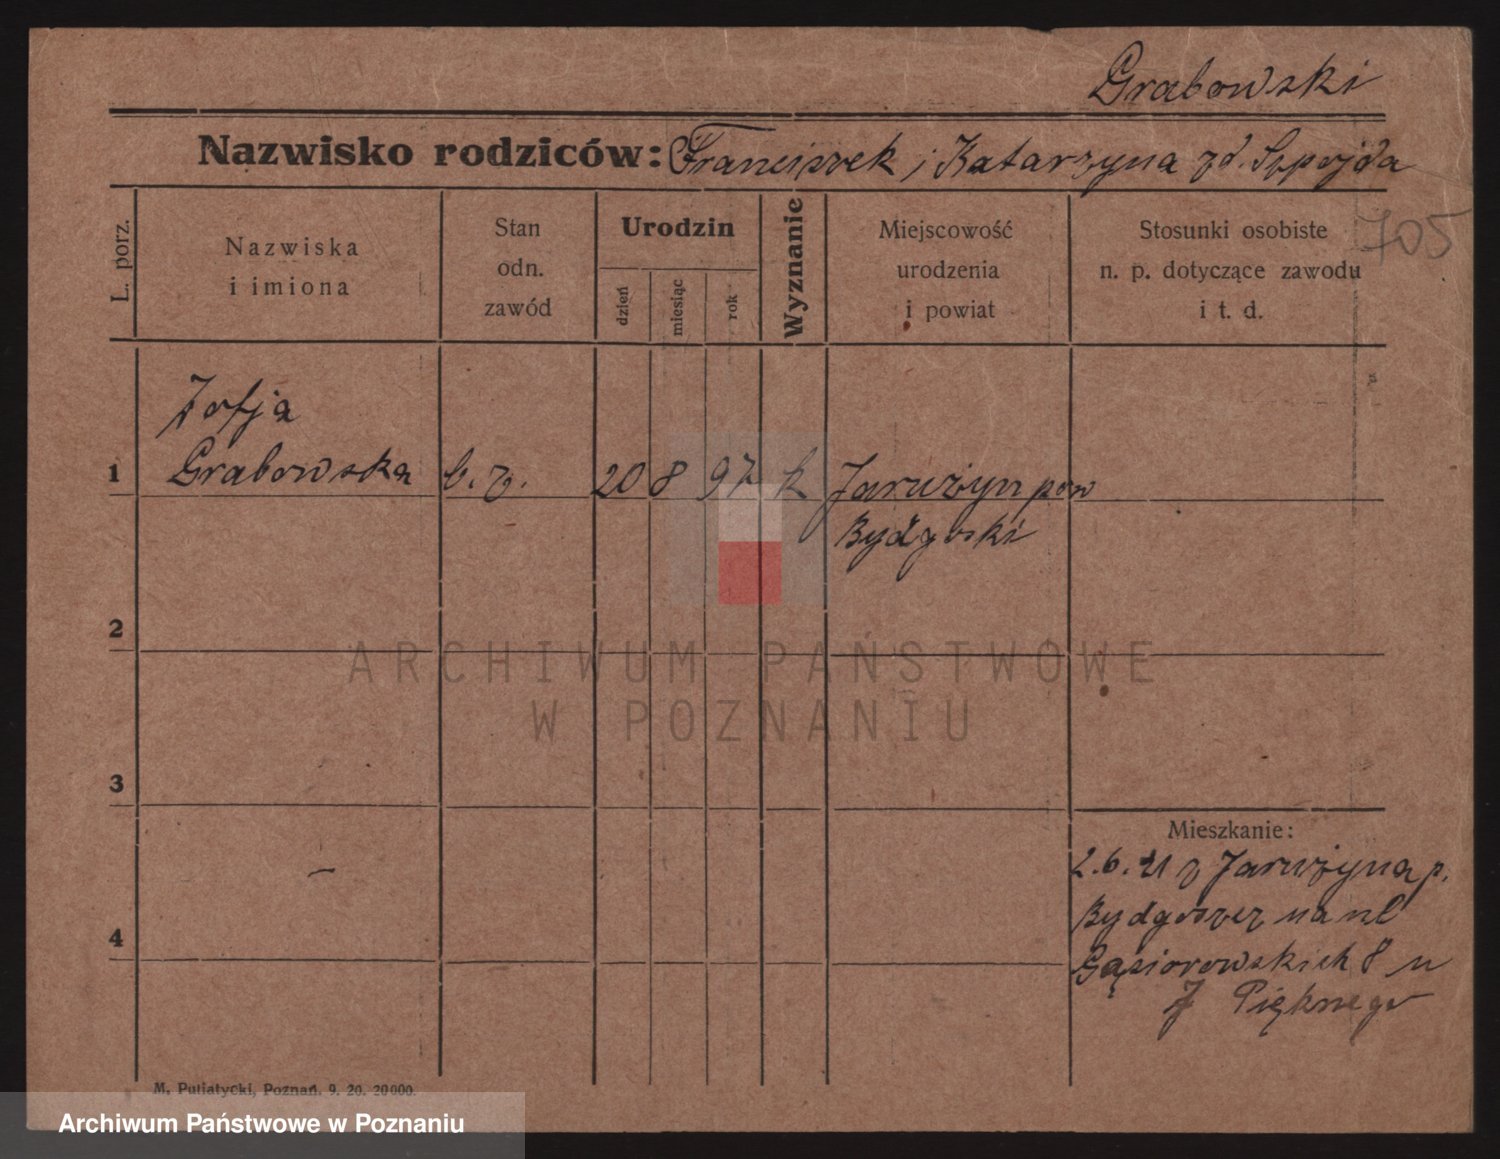 Grabowski
Nazwisko rodziców: Franciszek i Katarzyna zd. Szpojda
705
L. porz.
Nazwiska
i imiona
Stan
odn.
zawód
Urodzin
dzień
miesiąc
rok
Wyznanie
Miejscowość
urodzenia
i powiat
Stosunki osobiste
n. p. dotyczące zawodu
i t. d.
Zofja
1 Grabowska b. z. 20 8 97 k Jarużyn pow
Bydgoski
2
ARCHIWUM PAŃSTWOWE
W POZNANIU
3
Mieszkanie:
2.6.21 z Jarużyna p.
Bydgoszcz na ul
4
Gąsiorowskich 8 u
J Pięknego
M. Putiatycki, Poznań. 9. 20. 20000.
Archiwum Państwowe w Poznaniu